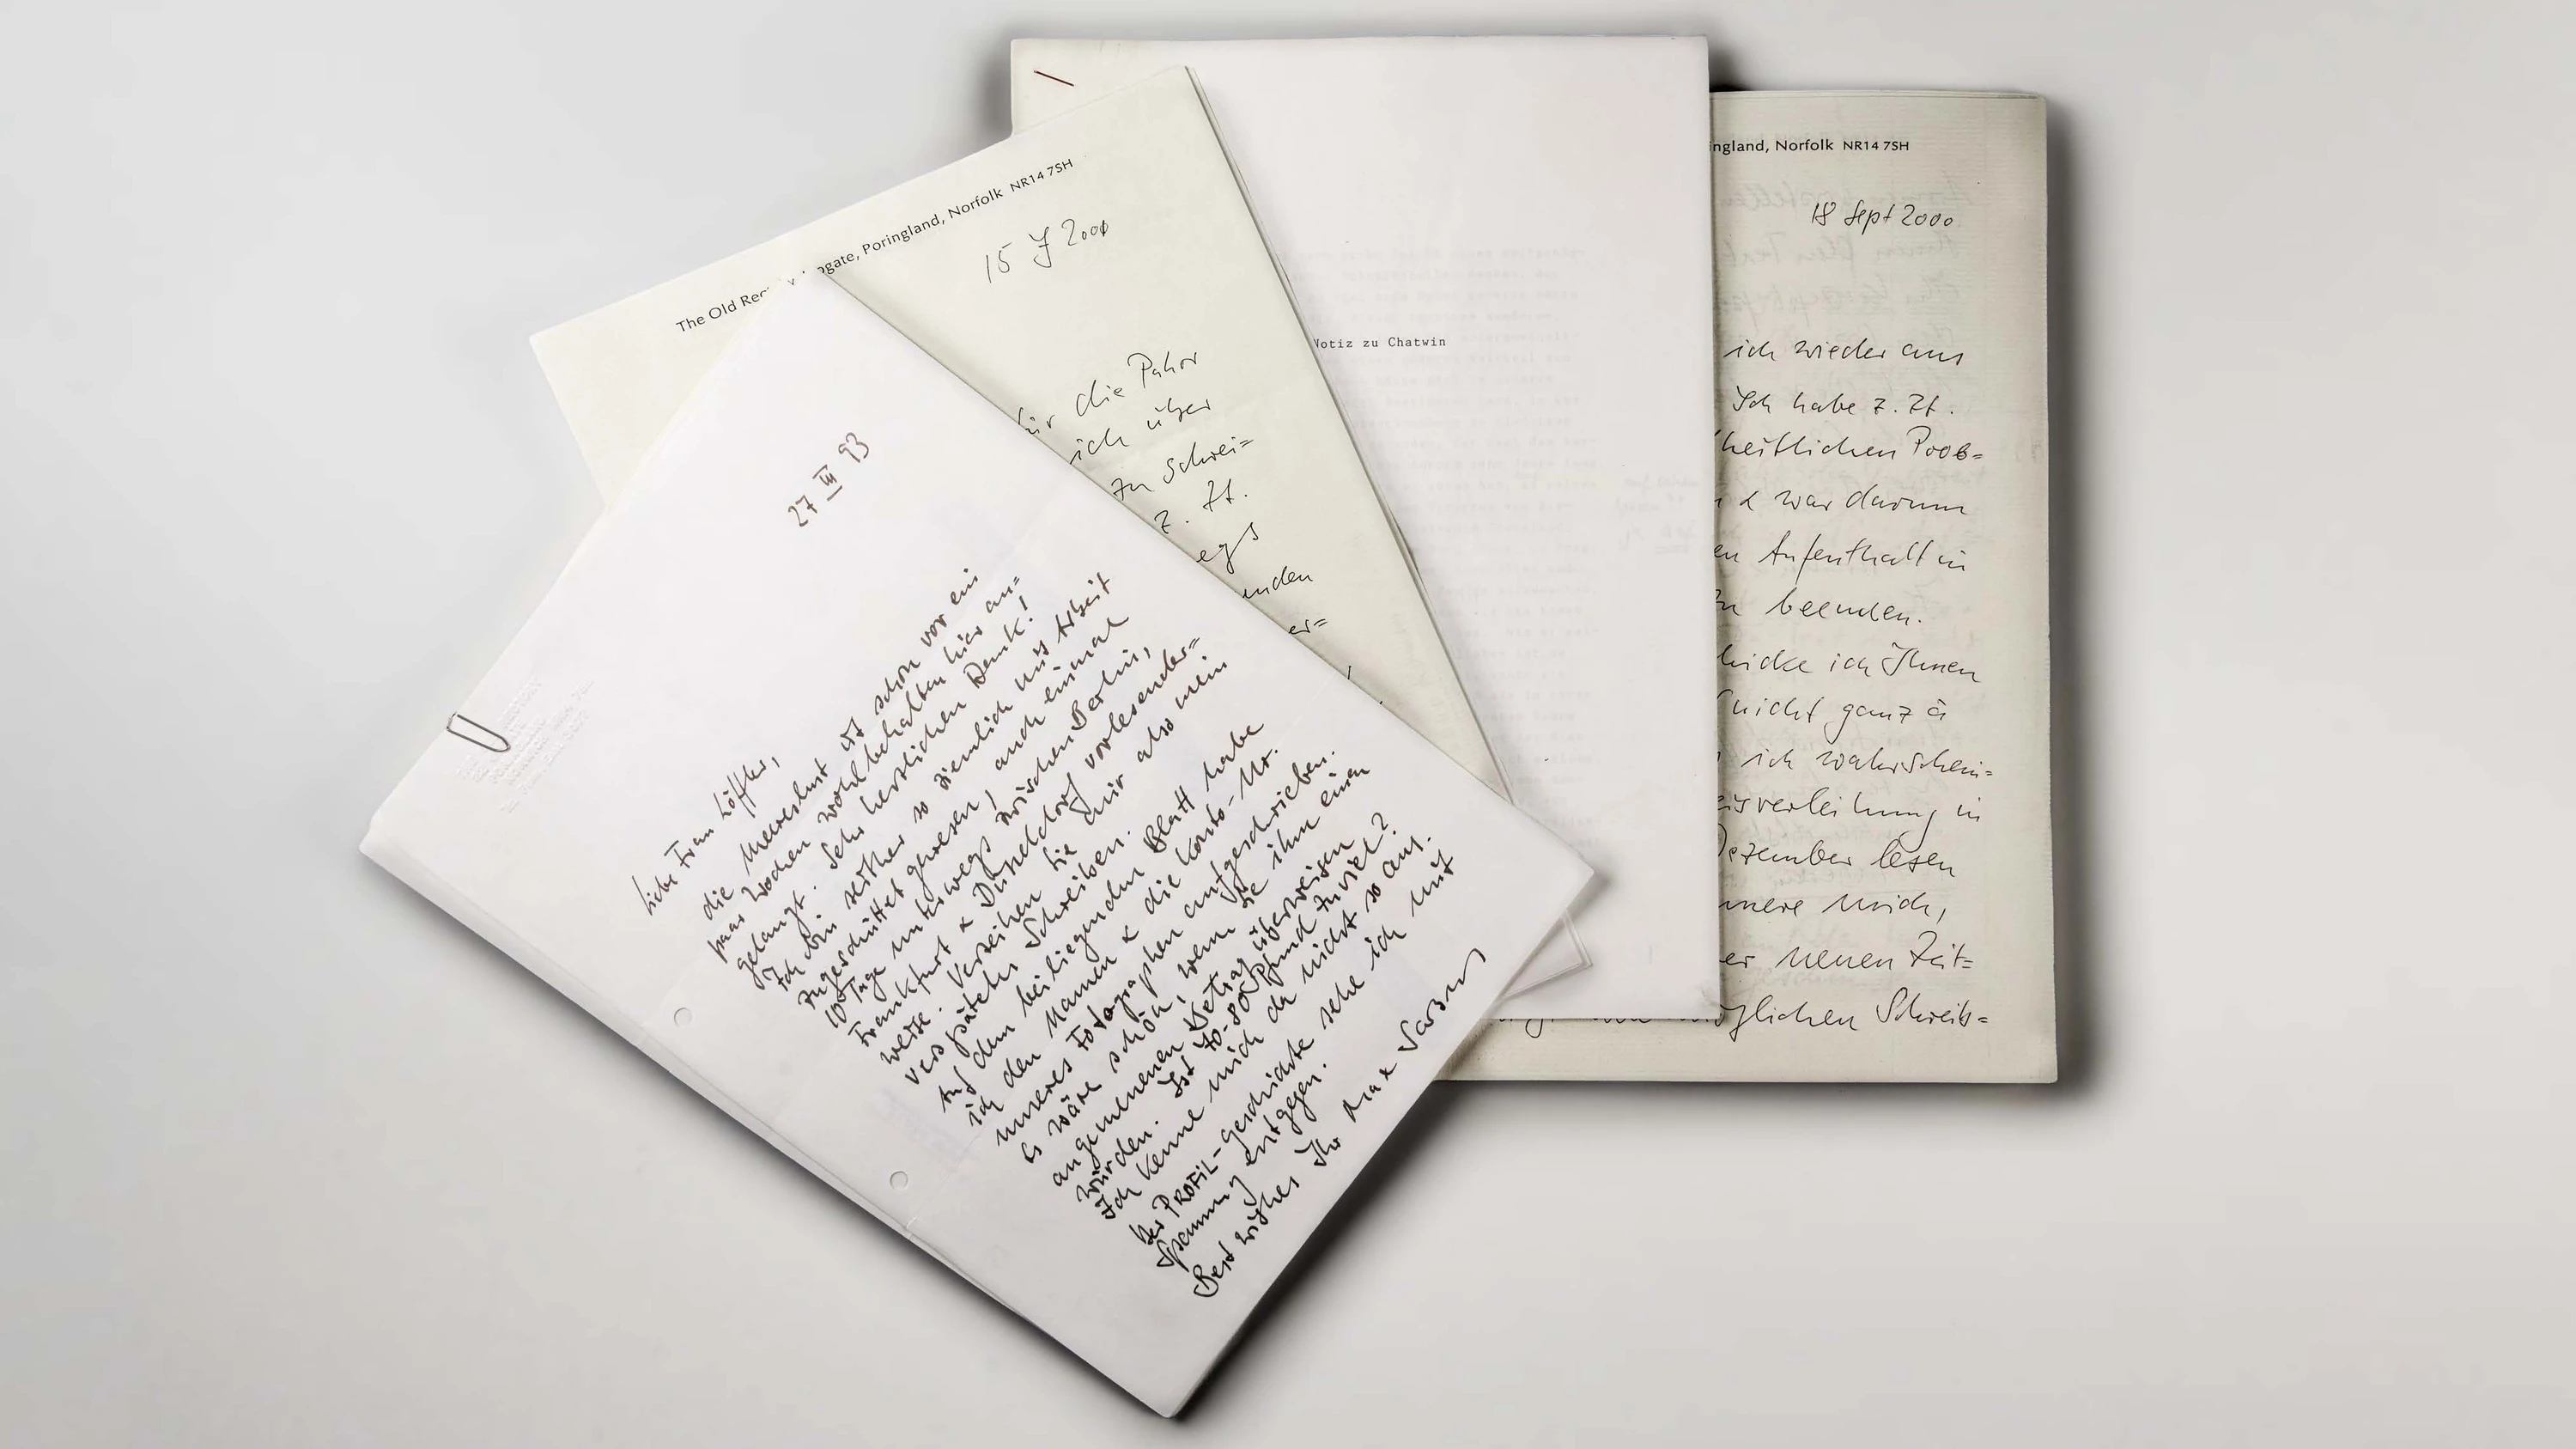 27 III 93
Liebe Frau Löffler,
die Meereslust ist schon vor ein
paar Wochen wohlbehalten hier an=
gelangt. Sehr herzlichen Dank!
Ich bin seither so ziemlich mit Arbeit
zugeschüttet gewesen, auch einmal
10 Tage unterwegs zwischen Berlin,
Frankfurt & Düsseldorf vorlesender=
weise. Verzeihen Sie mir also mein
verspätetes Schreiben.
Auf dem beiliegenden Blatt habe
ich den Namen & die Konto-Nr.
unseres Fotographen aufgeschrieben.
Es wäre schön, wenn Sie ihm einen
angemessenen Betrag überweisen
würden. Ist 70-80 Pfund zuviel?
Ich kenne mich da nicht so aus.
Der PROFIL-geschichte sehe ich mit
Spannung entgegen.
Best wishes Ihr Max
The Old Rec
gate, Poringland, Norfolk NR14 7SH
15 2000
die Pahor
ich über
zu Schrei=
z. Zt.
egs
nden
er=
Notiz zu Chatwin
ingland, Norfolk NR14 7SH
18 Sept 2000
ich wieder aus
Ich habe z. Zt.
heitlichen Prob=
& war darum
en Aufenthalt in
zu beenden.
hicke ich Ihnen
nicht ganz à
ich wahrschein=
eisverleihung in
Dezember lesen
nnere mich,
er neuen Zeit=
öglichen Schreib=